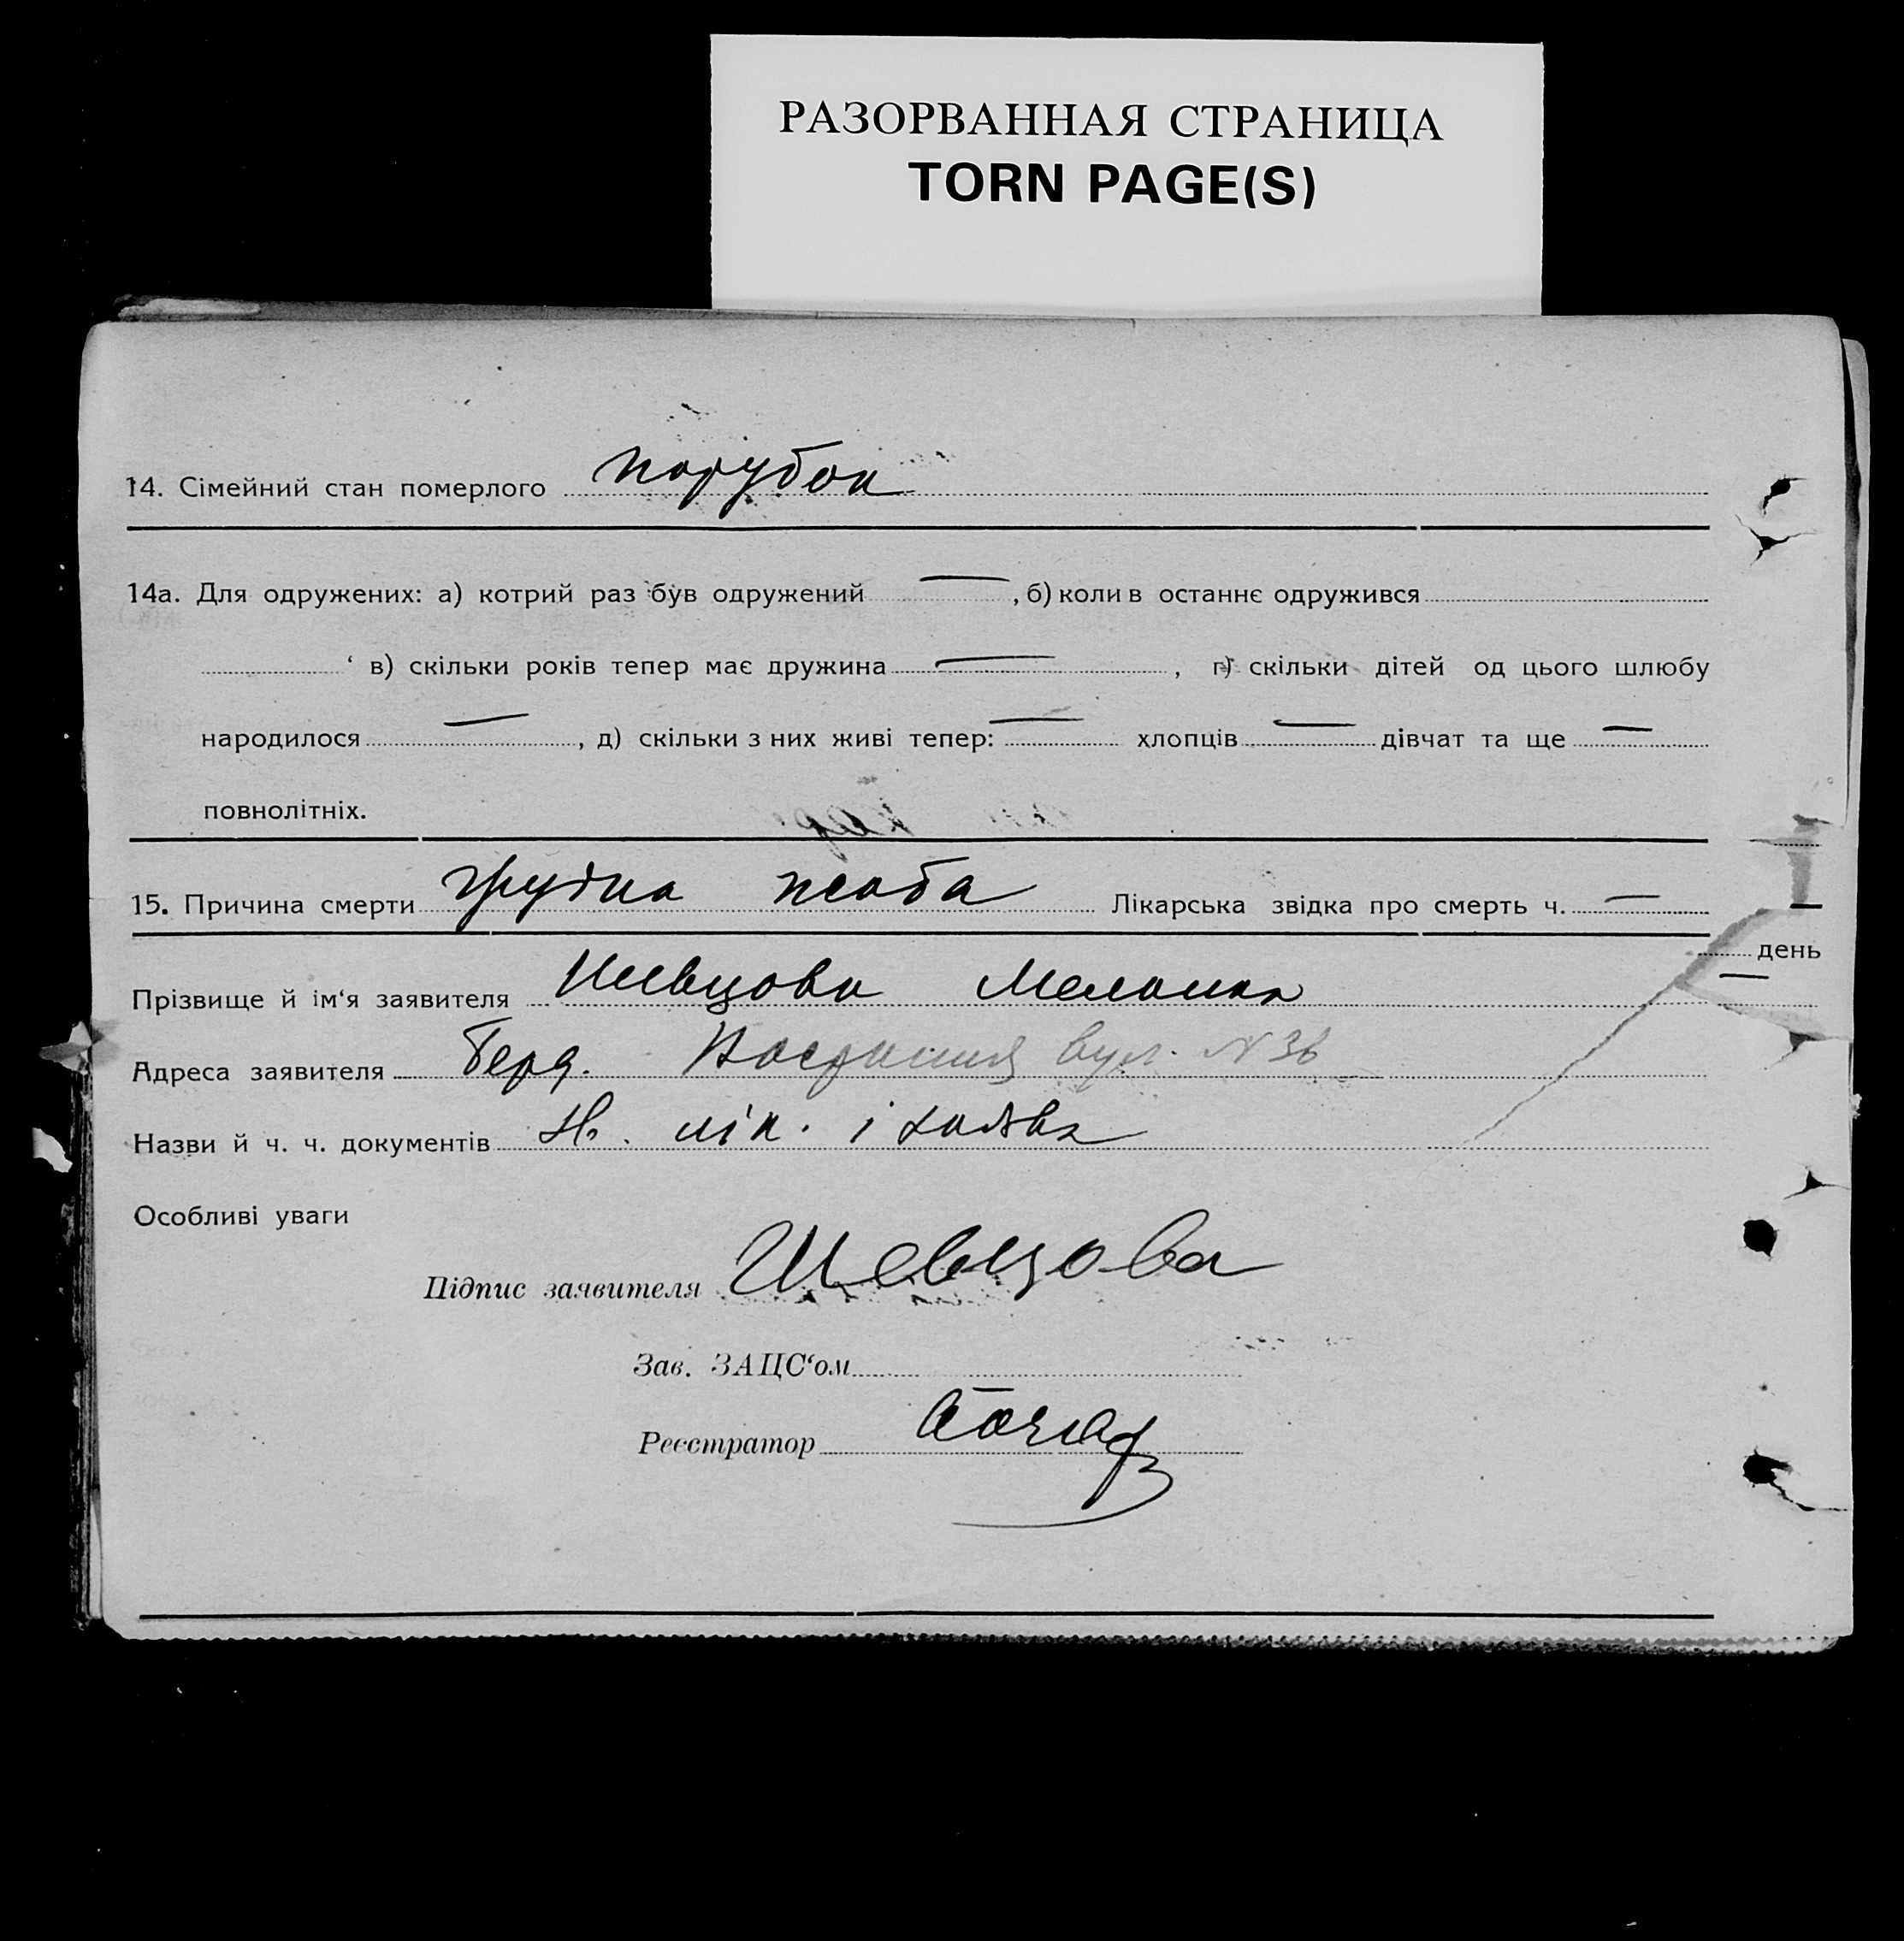 РАЗОРВАННАЯ СТРАНИЦА
TORN PAGE(S)
14. Сімейний стан померлого парубок
14а. Для одружених: а) котрий раз був одружений — , б) коли в останнє одружився
в) скільки років тепер має дружина — , г) скільки дітей од цього шлюбу
народилося — , д) скільки з них живі тепер: — хлопців — дівчат та ще —
повнолітніх.
15. Причина смерти грудна жаба Лікарська звідка про смерть ч. —
день
Прізвище й ім‘я заявителя Шевцова Меланка
Адреса заявителя Берд. вул. N 36
Назви й ч. ч. документів лік. і заява
Особливі уваги
Підпис заявителя Шевцова
Зав. ЗАЦС‘ом
Реєстратор